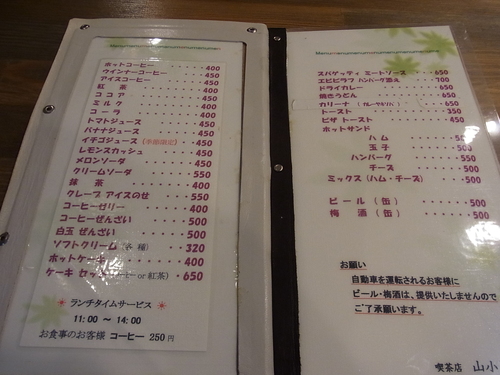 Menu
ホットコーヒー ・・・・・・ 400
ウインナーコーヒー ・・・・ 450
アイスコーヒー ・・・・・・ 450
紅　茶 ・・・・・・・ 400
ココア ・・・・・・・ 450
ミルク ・・・・・・・ 400
コーラ ・・・・・・・ 400
トマトジュース ・・・・・・ 450
バナナジュース ・・・・・・ 450
イチゴジュース (季節限定) ・・ 450
レモンスカッシュ ・・・・・ 450
メロンソーダ ・・・・・・ 450
クリームソーダ ・・・・・・ 550
抹　茶 ・・・・・・・ 400
クレープ アイスのせ ・・・・ 550
コーヒーゼリー ・・・・・ 400
コーヒーぜんざい ・・・・・ 500
白玉 ぜんざい ・・・・・ 500
ソフトクリーム (各 種) ・・ 320
ホットケーキ ・・・・・・ 400
ケーキ セット (コーヒー or 紅茶) ・ 650
ランチタイムサービス
11:00 ～ 14:00
お食事のお客様 コーヒー 250 円
Menu
スパゲッティ ミートソース ・・ 650
エビピラフ ハンバーグ添え ・・ 700
ドライカレー ・・・・・・ 650
焼きうどん ・・・・・・ 650
カリーナ ・・・・ 650
トースト ・・・・・・・ 350
ピザ トースト ・・・・・ 450
ホットサンド
ハム ・・・・・
玉子 ・・・・・ 500
ハンバーグ ・・・・・ 550
チーズ ・・・・・ 500
ミックス (ハム・チーズ) ・・・ 500
ビール (缶) ・・・・・・ 500
梅　酒 (缶) ・・・・・・ 500
お願い
自動車を運転されるお客様に
ビール・梅酒は、提供いたしませんので
ご了承願います。
喫茶店 山小